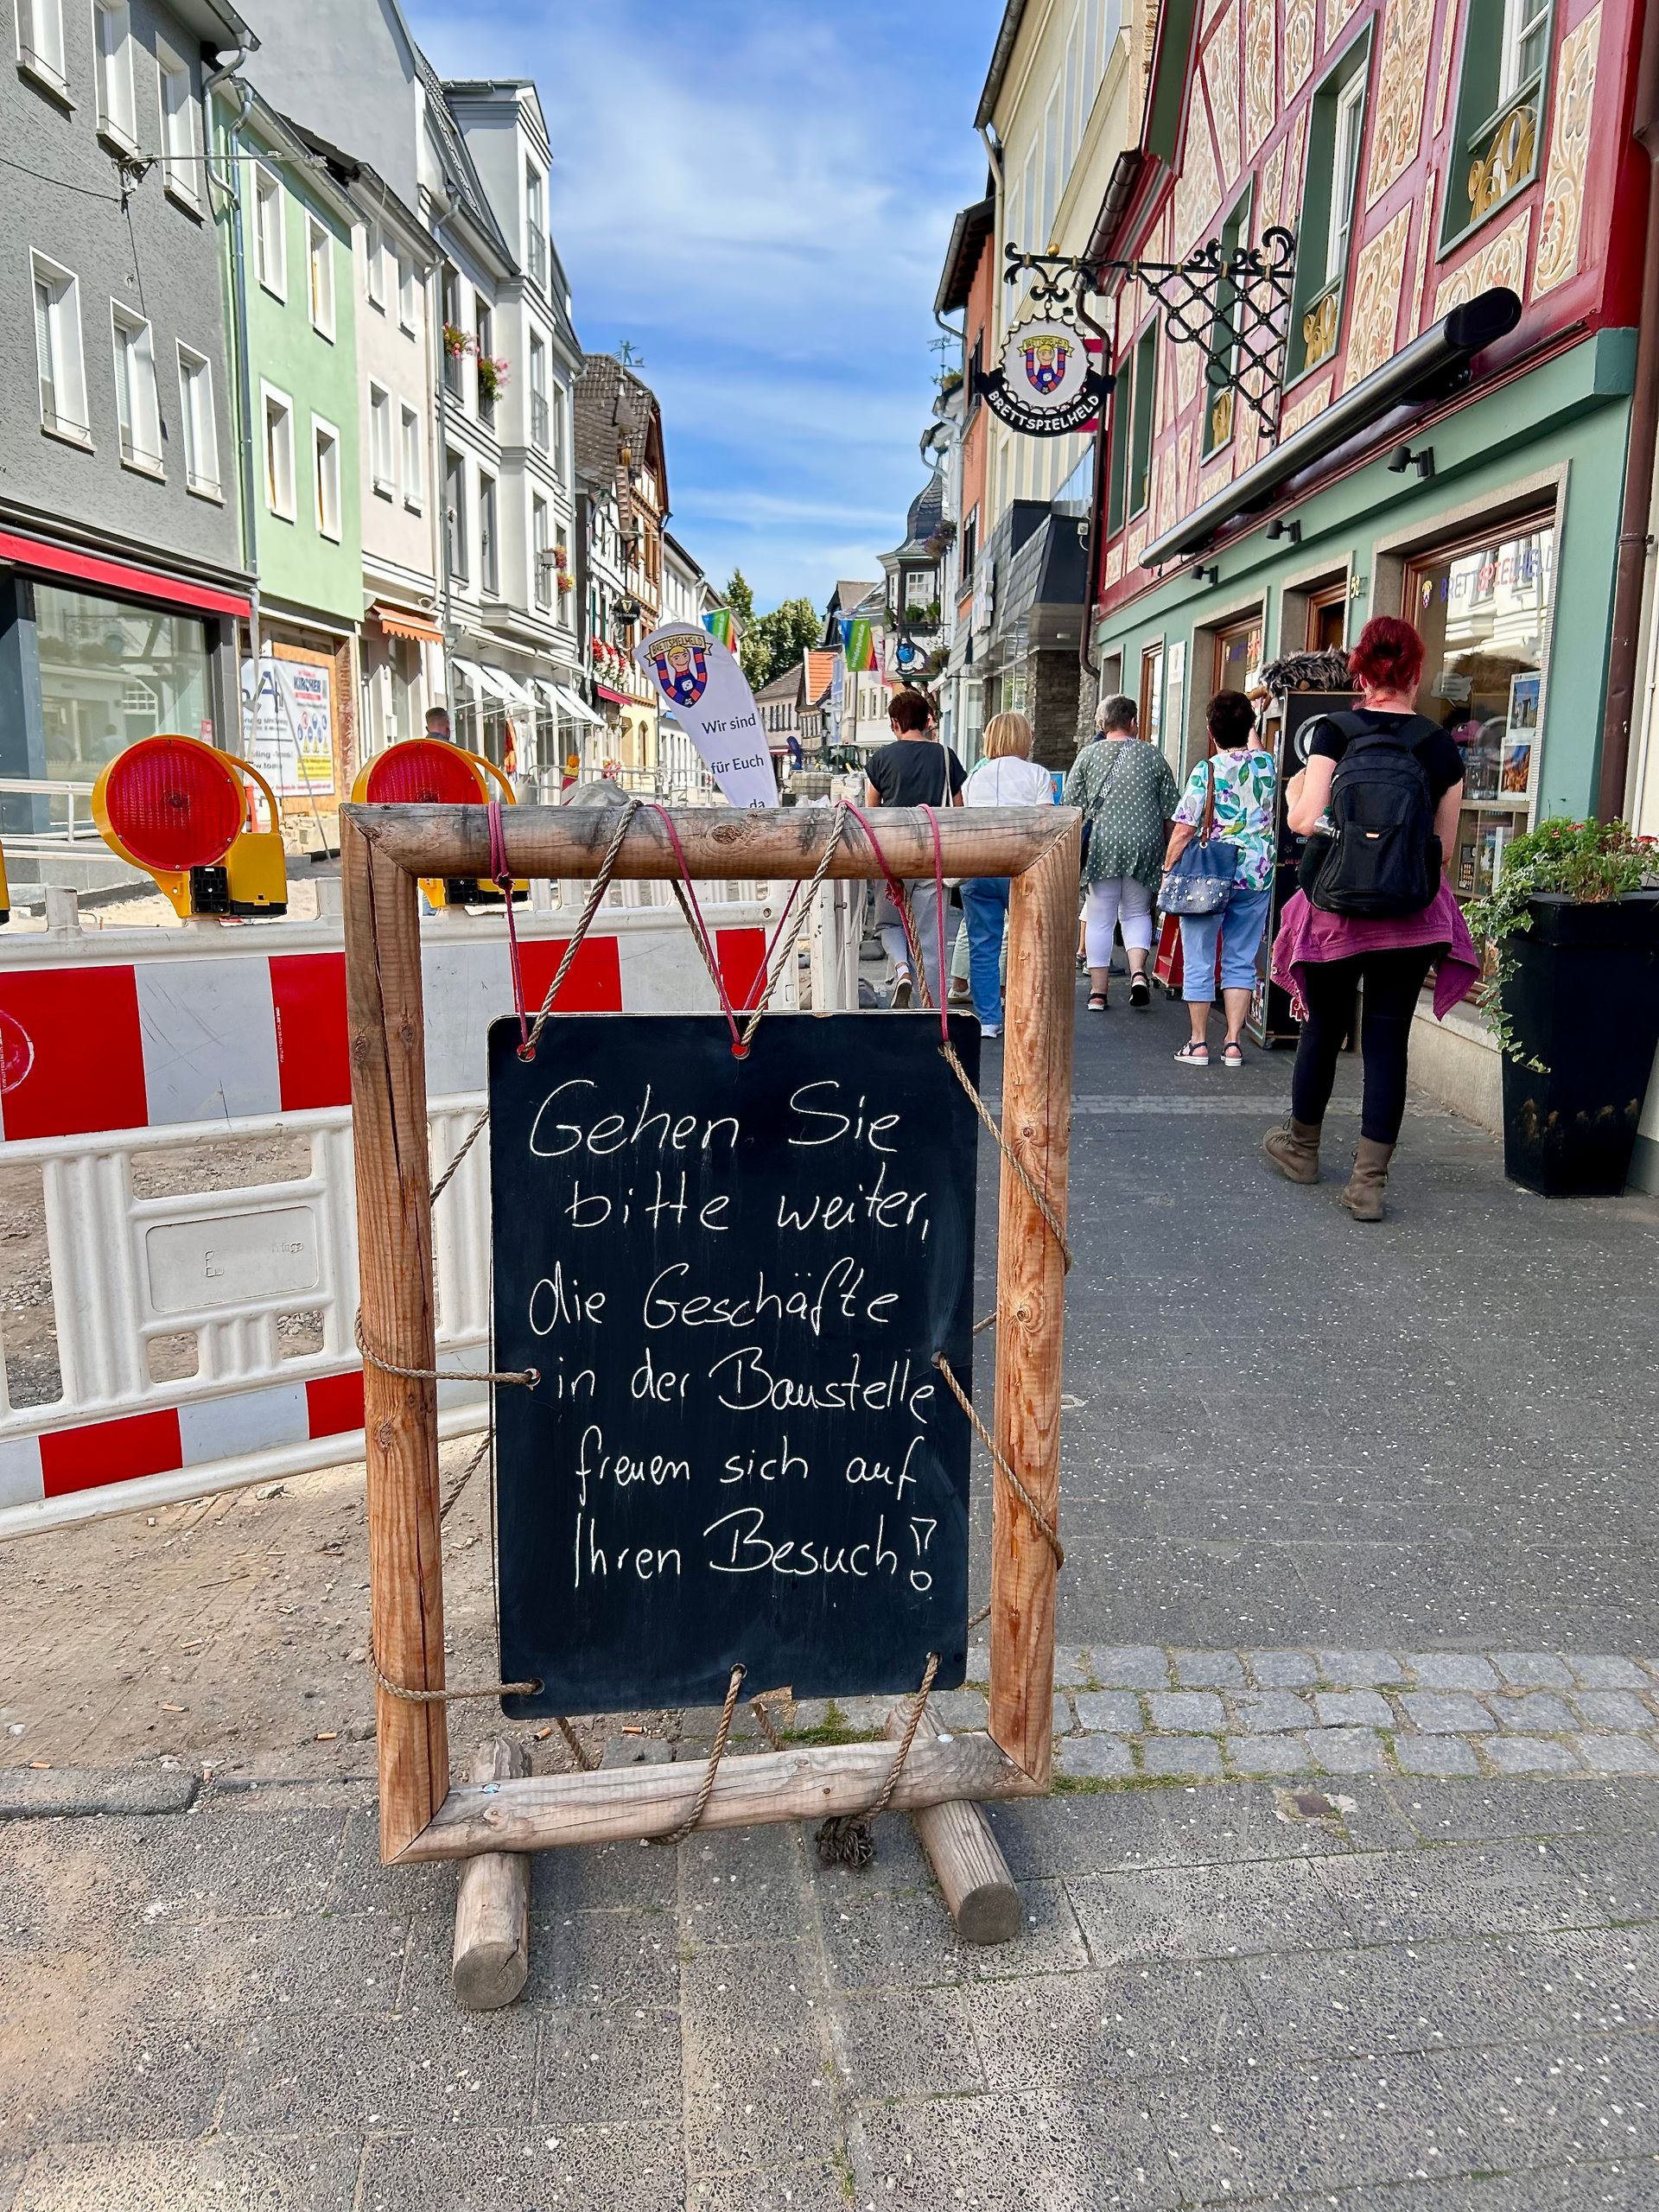 BRETTSPIELHELD
BRETTSPIELHELD
Wir sind
für Euch
da
KIRCHER
BRETTSPIELHELD
Gehen Sie
bitte weiter,
die Geschäfte
in der Baustelle
freuen sich auf
Ihren Besuch!